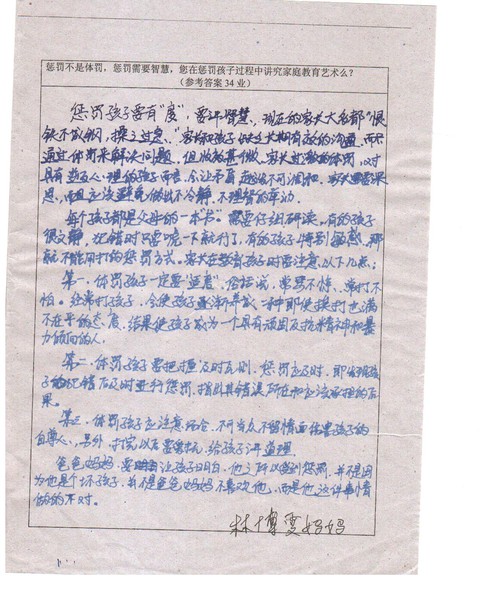 惩罚不是体罚，惩罚需要智慧，您在惩罚孩子过程中讲究家庭教育艺术么？
（参考答案 34 业）
惩罚孩子要有"度"，要讲智慧，现在的家长大多都"恨
铁不成钢，操之过急，"家长和孩子缺乏长期有效的沟通，而只
通过体罚来解决问题，但收效甚微，家长过激的体罚，对
具有独立人
思，而且应该避免做出不冷静，不理智的举动。
每个孩子都是父母的一本书。需要仔细研读，有的孩子
很文静，犯错时只要吼一下就行了，有的孩子特别敏感，那
就不能用打的惩罚方式。家长在惩罚孩子时要注意以下几点：
第一，体罚孩子一定要"适度"，俗话说，常骂不惊，常打不
怕。经常打孩子，会使孩子逐渐养成一种即使挨打也满
不在乎的态度，结果使孩子成为一个具有顽固反抗精神和暴
力倾向的人。
第二，体罚孩子要把握及时原则，惩罚应及时，即发现孩
子犯错后及时进行惩罚，指出其错误所在和应该承担的后
果。
第三，体罚孩子应注意场合，不可当众不留情面伤害孩子的
自尊心，另外，打完以后要安抚，给孩子讲道理
爸爸妈妈要让孩子明白，他之所以受到惩罚，并不是因
为他是个坏孩子，并不是爸爸妈妈不喜欢他，而是他这件事情
做的不对。
林博雯妈妈